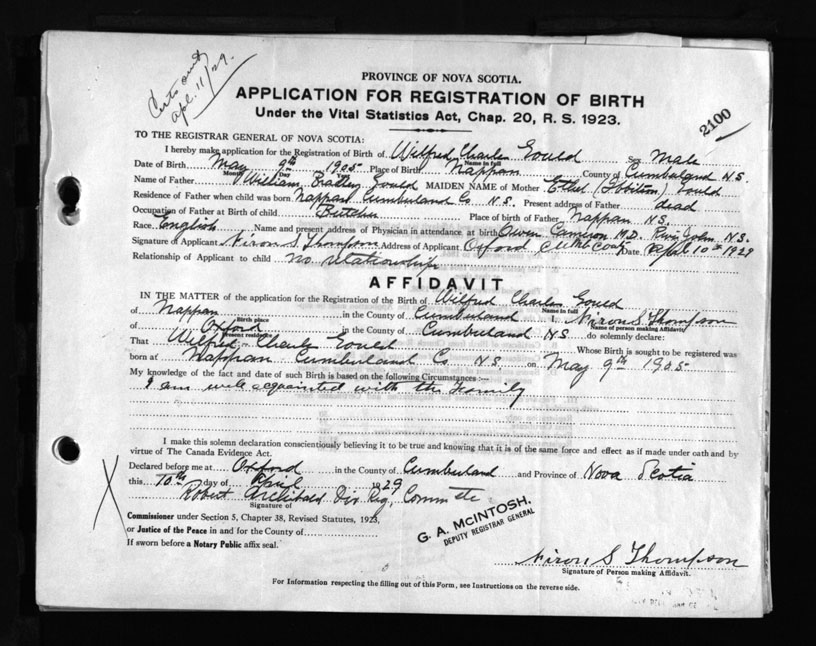 Certs sent
Apl. 11/29.
PROVINCE OF NOVA SCOTIA.
APPLICATION FOR REGISTRATION OF BIRTH
Under the Vital Statistics Act, Chap. 20, R. S. 1923.
2100
TO THE REGISTRAR GENERAL OF NOVA SCOTIA:
I hereby make application for the Registration of Birth of Wilfred Charles Gould Sex Male
Name in full
Date of Birth May 9th 1905 Place of Birth Nappan County of Cumberland N.S.
Month Day
Name of Father William Bradley Gould MAIDEN NAME of Mother Ethel Gould
Residence of Father when child was born Nappan Cumberland Co. N.S. Present address of Father dead
Occupation of Father at Birth of child Butcher Place of birth of Father Nappan N.S.
Race English Name and present address of Physician in attendance at birth Owen Cameron M.D. River John N.S.
Signature of Applicant Niron S. Thompson Address of Applicant Oxford Date April 10th 1929
Relationship of Applicant to child no relationship
AFFIDAVIT
IN THE MATTER of the application for the Registration of the Birth of Wilfred Charles Gould
Name in full
of Nappan in the County of Cumberland I, Niron S Thompson
Birth place Name of person making Affidavit
of Oxford in the County of Cumberland NS do solemnly declare:
Present residence
That Wilfred Charles Gould Whose Birth is sought to be registered was
born at Nappan Cumberland Co N.S. on May 9th 1905
My knowledge of the fact and date of such Birth is based on the following Circumstances :—
I am well acquainted with the Family
I make this solemn declaration conscientiously believing it to be true and knowing that it is of the same force and effect as if made under oath and by
virtue of The Canada Evidence Act.
Declared before me at Oxford in the County of Cumberland and Province of Nova Scotia
this 10th day of April 1929
Robert Archibald Div Reg,
Signature of
Commissioner under Section 5, Chapter 38, Revised Statutes, 1923,
or Justice of the Peace in and for the County of
If sworn before a Notary Public affix seal.
G. A. McINTOSH.
DEPUTY REGISTRAR GENERAL
Niron S Thompson
Signature of Person making Affidavit.
For Information respecting the filling out of this Form, see Instructions on the reverse side.